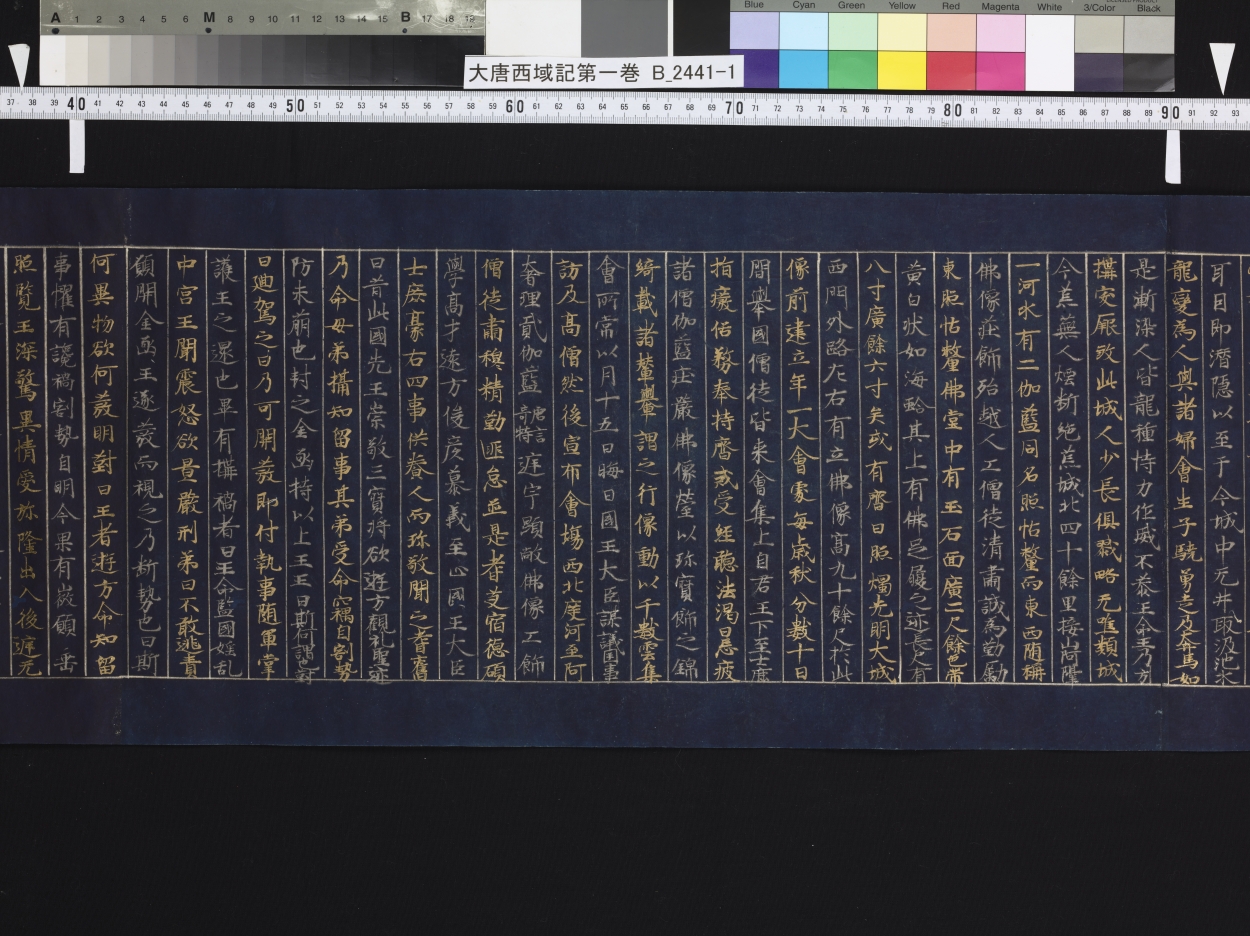 A 1 2 3 4 5 6 M 8 9 10 11 12 13 14 15 B 17 18 19
Blue Cyan Green Yellow Red Magenta White 3/Color Black
大唐西域記第一巻 B_2441-1
37 38 39 40 41 42 43 44 45 46 47 48 49 50 51 52 53 54 55 56 57 58 59 60 61 62 63 64 65 66 67 68 69 70 71 72 73 74 75 76 77 78 79 80 81 82 83 84 85 86 87 88 89 90 91 92 93
耳目即潛隱以至于今城中无井取汲池水
龍變為人與諸婦會生子驍勇走及奔馬如
是漸染人皆龍種恃力作威不恭王命王乃方
搆突厥致此城人少長俱戮略无噍類城
今荒蕪人煙断絶荒城北四十餘里接山阿隔
一河水有二伽藍同名照怙釐而東西随稱
佛像莊飾殆越人工僧徒清肅誠為勤勵
東照怙釐佛堂中有玉石面廣二尺餘色帶
黄白状如海蛤其上有佛足履之迹長尺有
八寸廣餘六寸矣或有齋日照燭光明大城
西門外路左右有立佛像高九十餘尺於此
像前建立年一大會處每歳秋分數十日
間舉國僧徒皆来會集上自君王下至士庶
捐廢俗務奉持齋戒受經聽法渇日忘疲
諸僧伽藍莊嚴佛像瑩以珎寶飾之錦
綺載諸輦輿謂之行像動以千數雲集
會所常以月十五日晦日國王大臣謀議國事
訪及高僧然後宣布會場西北度河至阿
奢理貳伽藍唐言奇特遅宇顯敞佛像工飾
僧徒肅穆精勤匪怠並是耆艾宿德碩
學高才遠方俊彦慕義至止國王大臣
士庶豪右四事供養人而弥敬聞之耆舊
曰昔此國先王崇敬三寶将欲遊方觀礼聖迹
乃命母弟攝知留事其弟受命竊自割勢
防未萠也封之金函持以上王王曰斯何謂也對
曰迴駕之日乃可開發即付執事随軍掌
護王之還也果有搆禍者曰王命監國婬乱
中宫王聞震怒欲置嚴刑弟曰不敢逃責
願開金函王遂發而視之乃断勢也曰斯
何異物欲何發明對曰王者遊方命知留
事懼有讒禍割勢自明今果有徴願垂
照覧王深驚異情愛弥隆出入後遅无